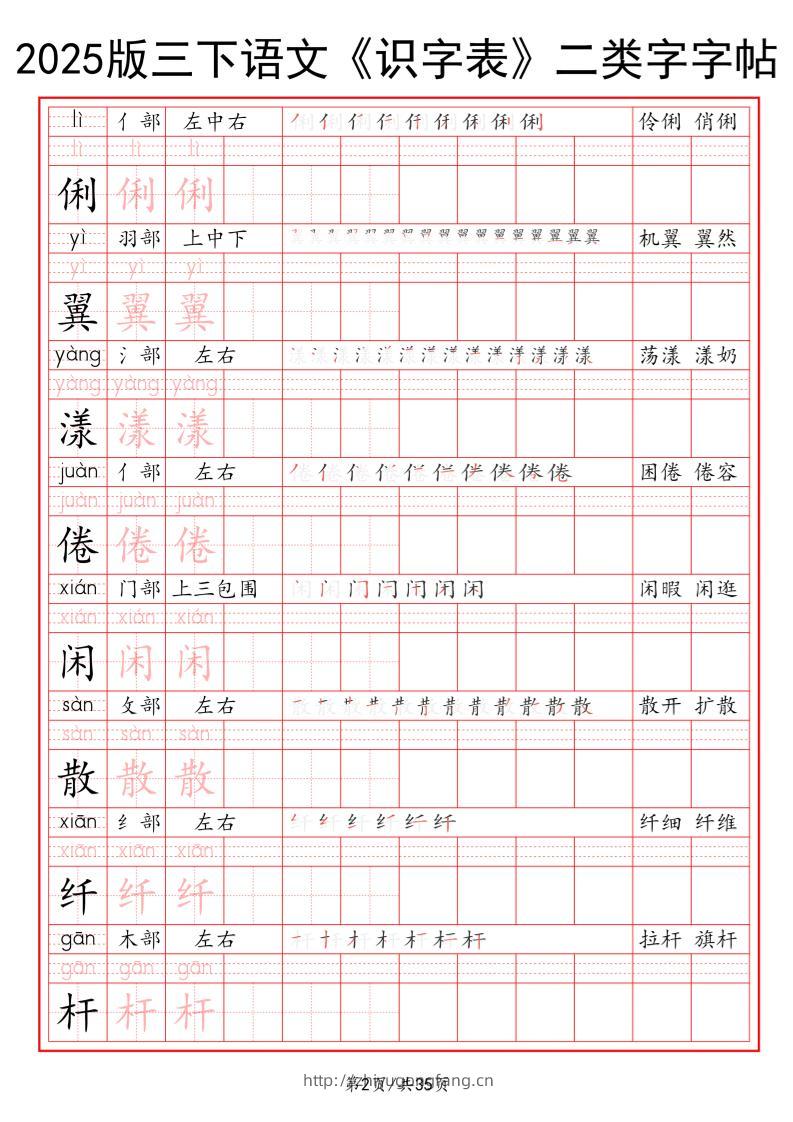 2025版三下语文《识字表》二类字字帖
lì 亻部 左中右 伶俐 俏俐
lì lì lì
俐 俐 俐
yì 羽部 上中下 机翼 翼然
yì yì yì
翼 翼 翼
yàng 氵部 左右 荡漾 漾奶
yàng yàng yàng
漾 漾 漾
juàn 亻部 左右 困倦 倦容
juàn juàn juàn
倦 倦 倦
xián 门部 上三包围 闲暇 闲逛
xián xián xián
闲 闲 闲
sàn 攵部 左右 散开 扩散
sàn sàn sàn
散 散 散
xiān 纟部 左右 纤细 纤维
xiān xiān xiān
纤 纤 纤
gān 木部 左右 拉杆 旗杆
gān gān gān
杆 杆 杆
http://zhiyugongfang.cn
第2页/共35页